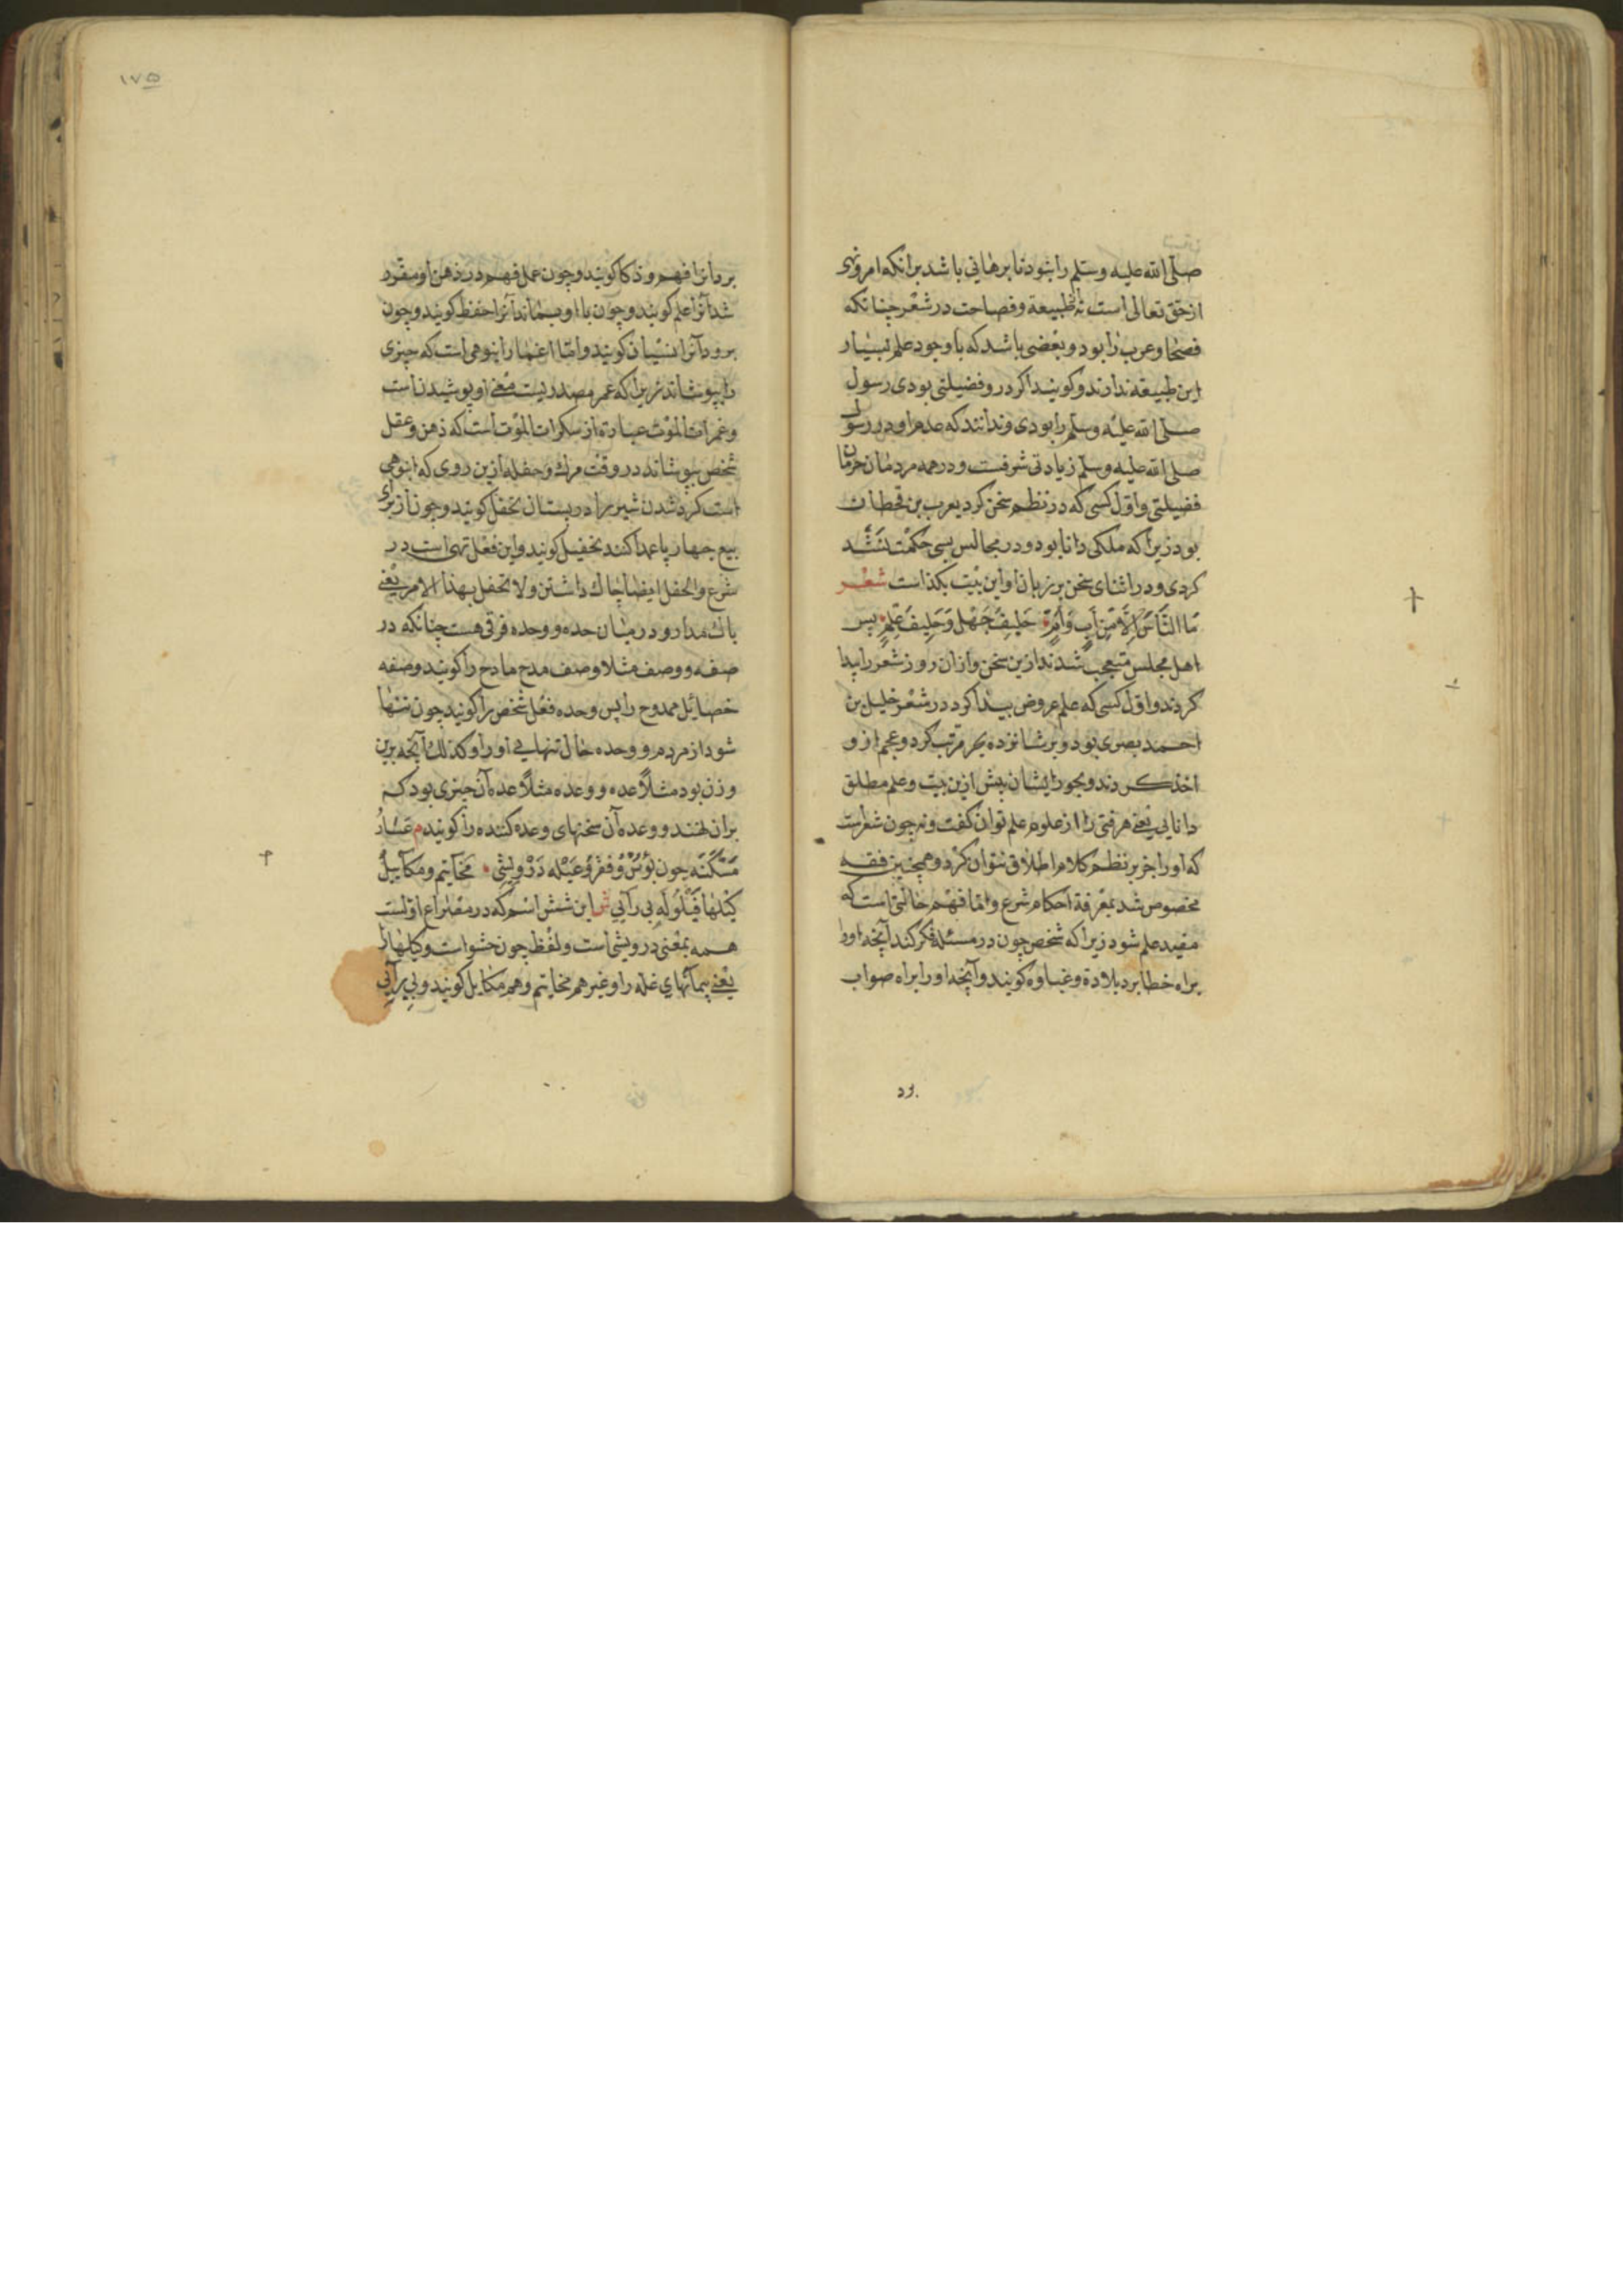 صلی الله علیه وسلم را نبود تا برهانی باشد برانکه امر ونهی
از حق تعالی است نه طبیعة وفصاحت در شعر چنانکه
فصحا وعرب را بود وبعضی باشد که با وجود علم بسیار
این طبیعه ندارند وکویند اکر درو فضیلتی بودی رسول
صلی الله علیه وسلم را بودی وندانند که عدم او در رسول
صلی الله علیه وسلم زیادتی شرفست ودر همه مردمان حرمان
فضیلتی واول کسی که در نظم سخن کرد یعرب بن قحطان
بود زیرا که ملکی دانا بود ودر مجالس بسی حکمت
کردی ودر اثنای سخن بر زبان او این بیت بکذاست شعر
مَا النَّاسُ اِلَّا مِنْ اَبٍ وَاُمٍّ خَلِیفُ جَهْلٍ وَحَلِیفُ عِلْمٍ پس
اهل مجلس متعجب شدند ازین سخن وازان روز شعر را پیدا
کردند واول کسی که علم عروض پیدا کرد در شعر خلیل بن
احمد بصری بود وبر شانزده بحر مرتب کرد وعجم ازو
اخذ کردند وبحور ایشان پیش ازین بیت وعلم مطلق
دانایی یعنی هر فنی را از علوم علم توان کفت ونه چون شعرست
که او را جز بر نظم کلام اطلاق نتوان کرد وهمچنین فقه
مخصوص شد بمعرفة احکام شرع واما فهم حالتی است که
مفید علم شود زیرا که شخص چون در مسئله فکر کند آنچه اورا
براه خطا برد بلادة وغباوه کویند وآنچه اورا براه صواب
برد
۱۷۵
برد آنرا فهم وذکا کویند وچون عمل فهم در ذهن او مقرر
شد آنرا علم کویند وچون با او بماند آنرا حفظ کویند وچون
برود آنرا نسیان کویند واما اغمار انبوهی است که چیزی
را بپوشاند زیرا که غمر مصدریست معنی او پوشیدنست
وغمرات الموت عبارة از سکرات الموت است که ذهن وعقل
شخص بپوشاند در وقت مرك وحفله ازین روی که انبوهی
است کرد شدن شیر را در پستان تحفل کویند وچون از برای
بیع چهار پا عمدا کنند تحفیل کویند واین فعل نهی است در
شرع والحفل ایضا باك داشتن ولا تحفل بهذا الامر یعنی
باك مدار ودر میان حده ووحده فرقی هست چنانکه در
صفه ووصف مثلا وصف مدح مادح را کویند وصفه
خصائل ممدوح را پس وحده فعل شخص را کویند چون تنها
شود از مردم ووحده حال تنهایی اورا وکذلك آنچه برین
وزن بود مثلاً عده ووعده مثلاً عده آن چیزی بود که
بران نهند ووعده آن سخنهای وعده کننده را کویند م
مَسْکَنَه چون بُؤس وفقر وعَیْله دَرْویشی مخاتیم ومکاییل
کیلها قَیْلُولَه بی رآیی ش این شش اسم که در مصراع اولست
همه بمعنی درویشی است ولفظ چون حشو است وکیلها را
یعنی پیمانهای غله را وغیر هم مخاتیم وهم مکاییل کویند وبی رآیی